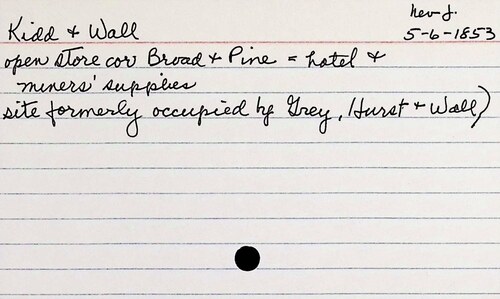 Nev. J.
Kidd & Wall 5-6-1853
open store cor Broad & Pine = hotel &
miners' supplies
site formerly occupied by Grey, Hurst & Wall)